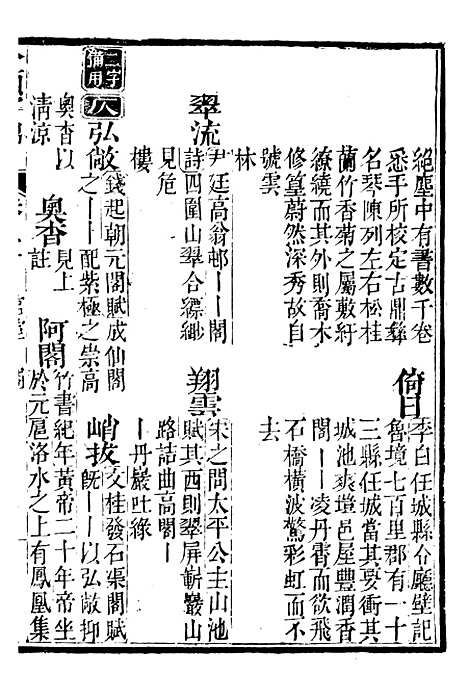 絕塵中有書數千卷
悉手所校定古鼎彝
名琴陳列左右松桂
蘭竹香菊之屬敷紆
繚繞而其外則喬木
修篁蔚然深秀故自
號雲
林
倚日
李白任城縣令廳壁記
魯境七百里郡有一十
三縣任城當其要衝其
城池爽塏邑屋豐潤香
閣一一凌丹霄而欲飛
石橋橫波驚彩虹而不
去
翠流
尹廷高翁邨一一閣
詩四圍山翠合縹緲
見危
樓
翔雲
宋之問太平公主山池
賦其西則翠屏嶄巖山
路詰曲高閣一
一丹巖吐綠
二字備用
仄
弘敞
錢起朝元閣賦成仙閣
之一一配紫極之崇高
峭拔
文桂發石渠閣賦
旣一一以弘敞抑
奧杳以
清凉
奧杳
見上
註
阿閣
竹書紀年黃帝二十年帝坐
於元扈洛水之上有鳳凰集